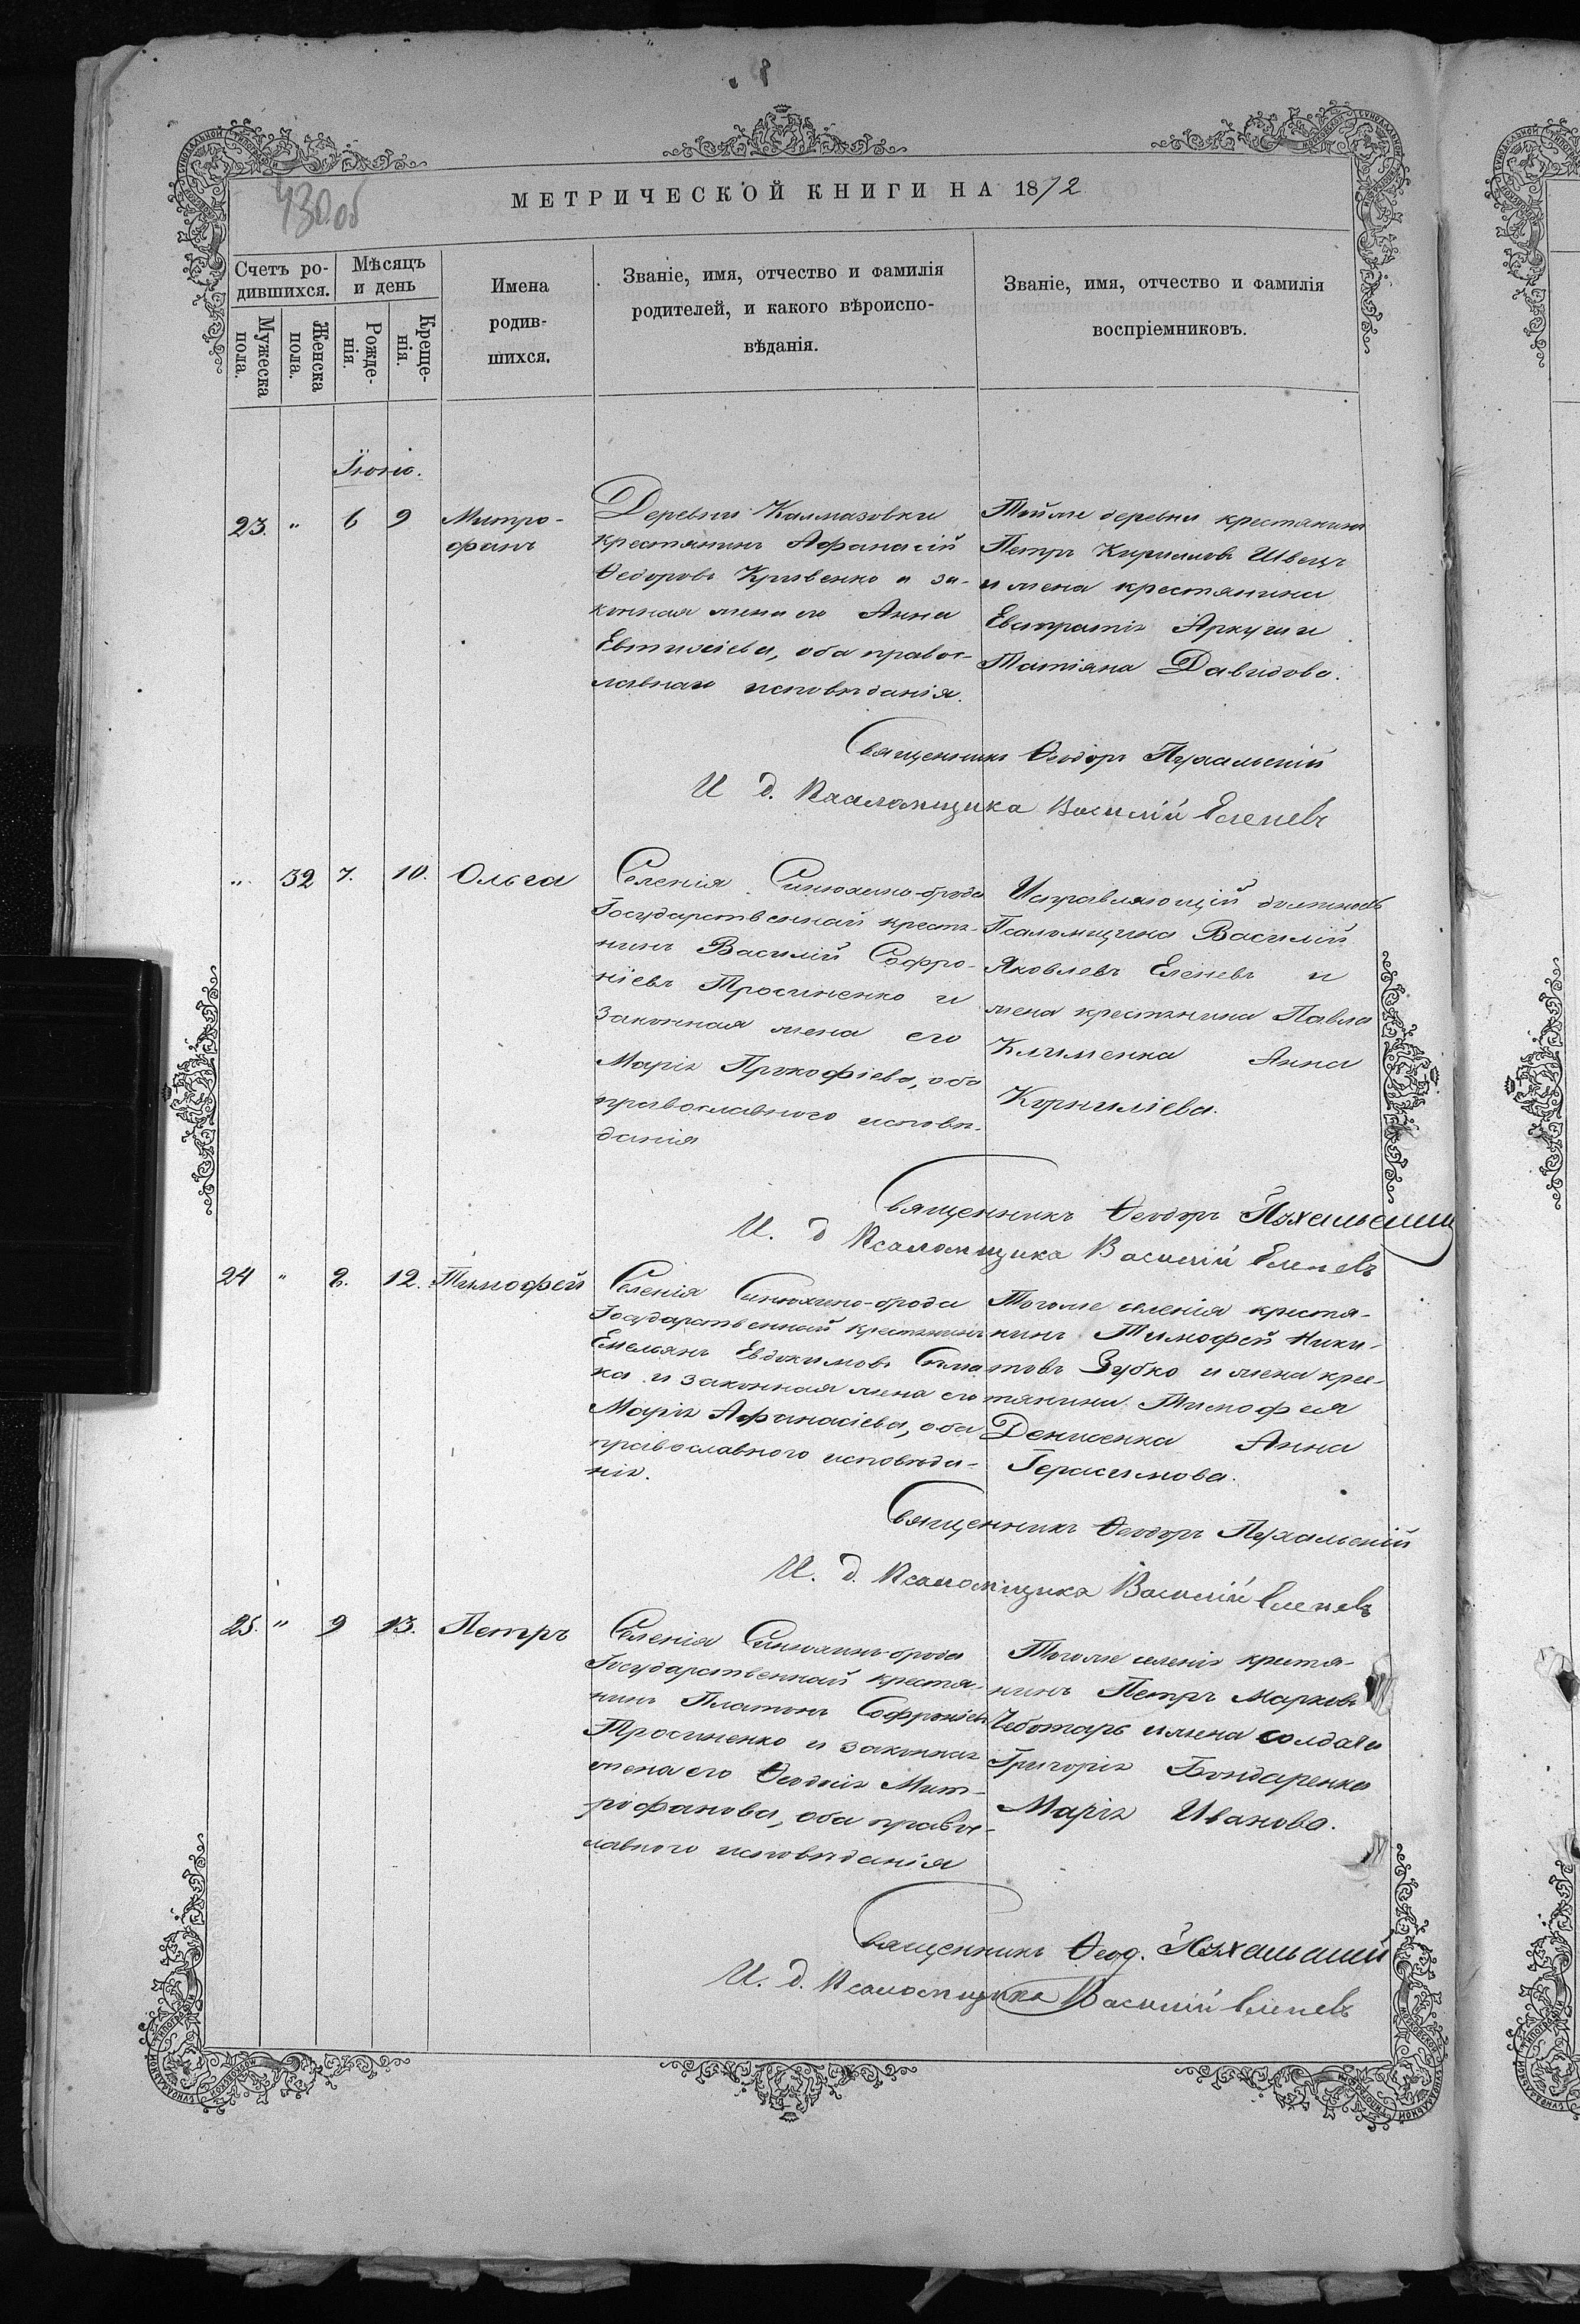 430об
МЕТРИЧЕСКОЙ КНИГИ НА 1872
Счетъ ро-
дившихся.
Мѣсяцъ
и день
Мужеска
пола.
Женска
пола.
Рожде-
нія.
Креще-
нія.
Имена
родив-
шихся.
Званіе, имя, отчество и фамилія
родителей, и какого вѣроиспо-
вѣданія.
Званіе, имя, отчество и фамилія
воспріемниковъ.
Іюнь.
23. " 6 9
Митро-
фанъ
Деревни Калмазовки
крестянинъ Афанасій
Ѳедоровъ Кривенко и за-
конная жена его Анна
Евтихіева, оба правос-
лавнаго исповѣданія.
Тойже деревни крестянинъ
Петръ Кирилловъ Швецъ
и жена крестянина
Евстратія Аркуши
Татіяна Давидова.
Священникъ Ѳеодоръ Пухальскій
И д. Псаломщика Василій Еленевъ
" 32 7. 10. Ольга
Селенія Синюхино-брода
Государственный крестя-
нинъ Василій Софро-
ніевъ Тросиненко и
законная жена его
Марія Прокофіева, оба
православного исповѣ-
данія
Исправляющій должность
Псаломщика Василій
Яковлевъ Еленевъ и
жена крестянина Павла
Клименка Анна
Корнилієва.
Священникъ Ѳеодоръ Пухальскій
И. д Псаломщика Василій Еленевъ
24 " 8. 12. Тимофей
Селенія Синюхино-брода
Государственный крестянинъ
Емельянъ Евдокимовъ
и законная жена его
Марія Афанасіева, оба
православного исповѣда-
нія.
Тогоже селенія крестя-
нинъ Тимофей Ники-
товъ Зубко и жена крес-
тянина Тимофея
Денисенка Анна
Герасимова.
Священникъ Ѳеодоръ Пухальскій
И. д. Псаломщика Василій Еленевъ
25. " 9 13. Петръ
Селенія Синюхинъ-брода
Государственный крестя-
нинъ Платонъ Софроніевъ
Тросиненко и законная
жена его Ѳеодосія Мит-
рофанова, оба правос-
лавного исповѣданія
Тогоже селенія крестя-
нинъ Петръ Марковъ
Чеботарь и жена солдата
Григорія Бондаренка
Марія Иванова.
Священникъ Ѳеод. Пухальскій
И. д. Псаломщика Василій Еленевъ